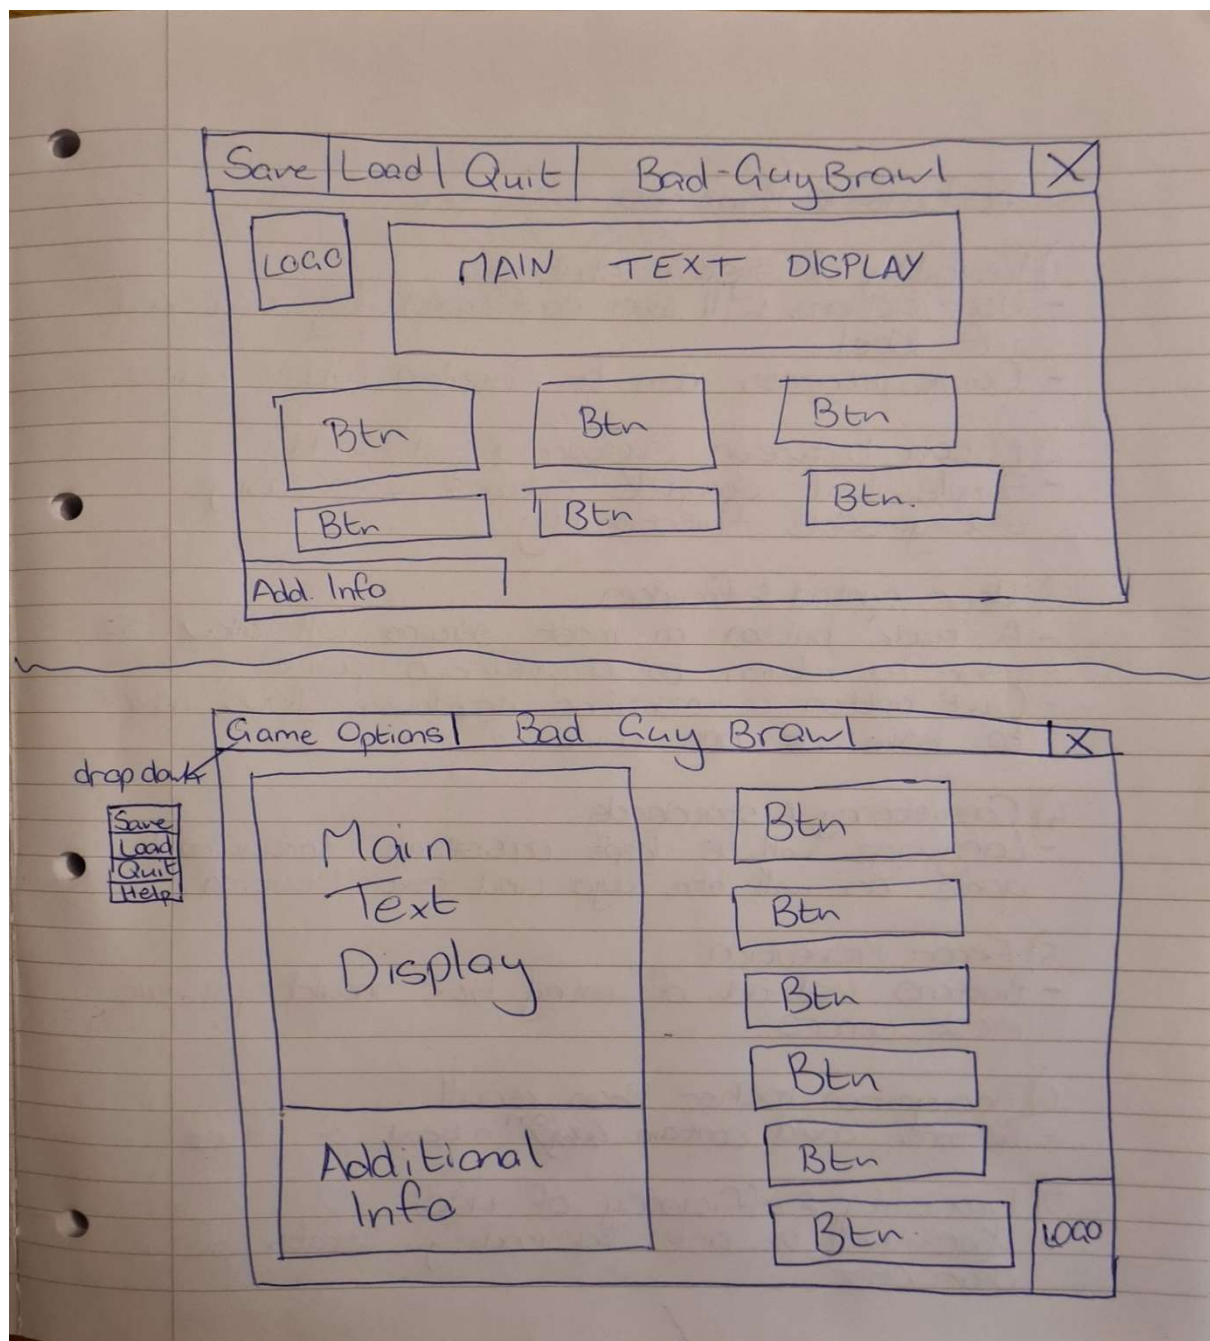 Save Load Quit Bad-Guy Brawl X
LOGO MAIN TEXT DISPLAY
Btn Btn Btn
Btn Btn Btn.
Add. Info
Game Options Bad Guy Brawl X
drop down
Save
Load
Quit
Help
Main
Text
Display
Additional
Info
Btn
Btn
Btn
Btn
Btn
Btn
LOGO